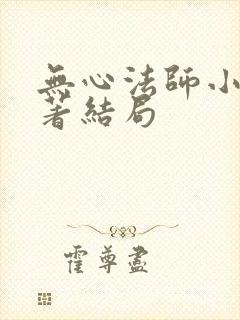 無心法師小
著結局
霍尊盡